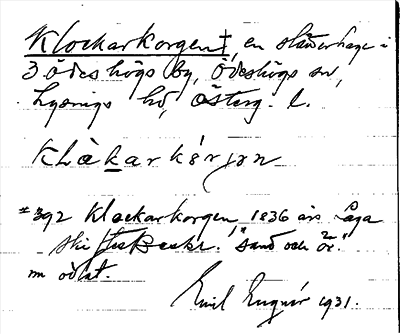 Klockarkorgen‡, en slåtterhage i
3 Ödeshögs by, Ödeshögs sn,
Lysings hd, Österg. l.
Klåkarkórjən
#392 Klockarkorgen 1836 års Laga
skifte "sand och ör."
m odlat.
Emil 1931.